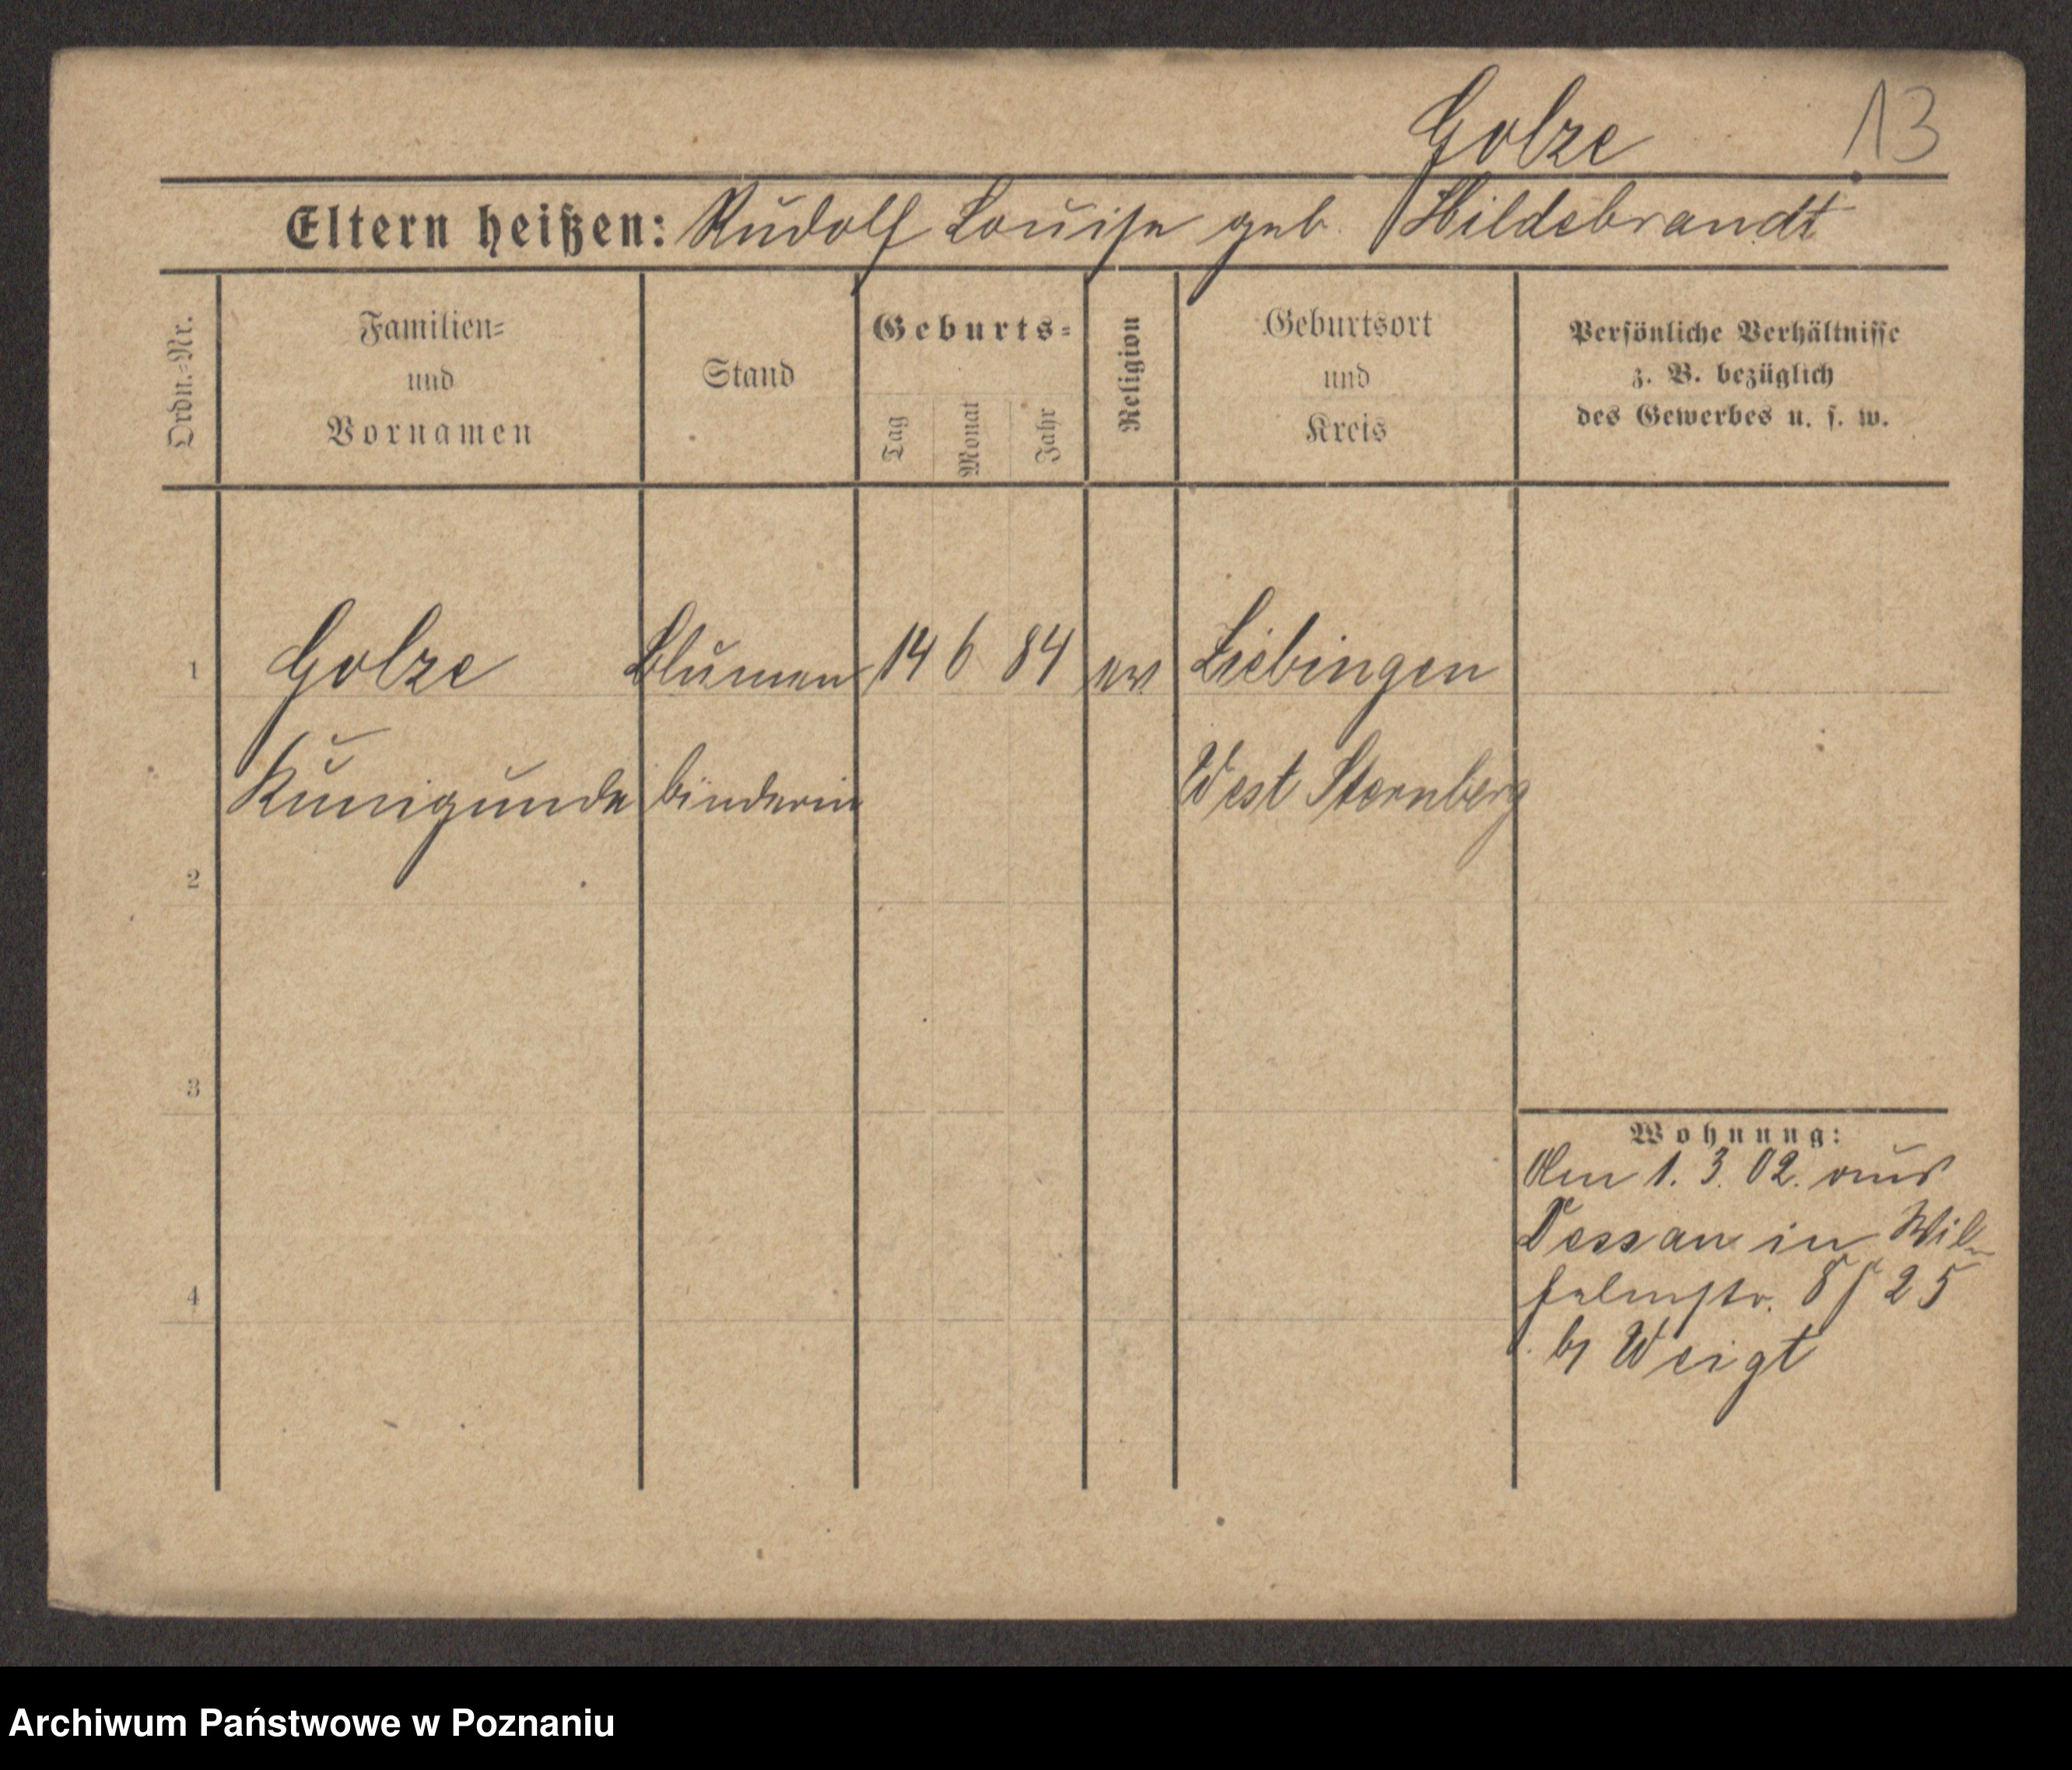 Golze 13
Eltern heißen: Rudolf Louise geb. Hildebrandt
Ordn.-Nr.
Familien-
und
Vornamen
Stand
Geburts-
Tag
Monat
Jahr
Religion
Geburtsort
und
Kreis
Persönliche Verhältnisse
z. B. bezüglich
des Gewerbes u. s. w.
1 Golze Blumen 14 6 84 ev Liebingen
Kunigunde binderin West Sternberg
2
3
4
Wohnung:
1. 3. 02. aus
Dessau in Wil-
helmstr. 25
b/ Weigt
Archiwum Państwowe w Poznaniu